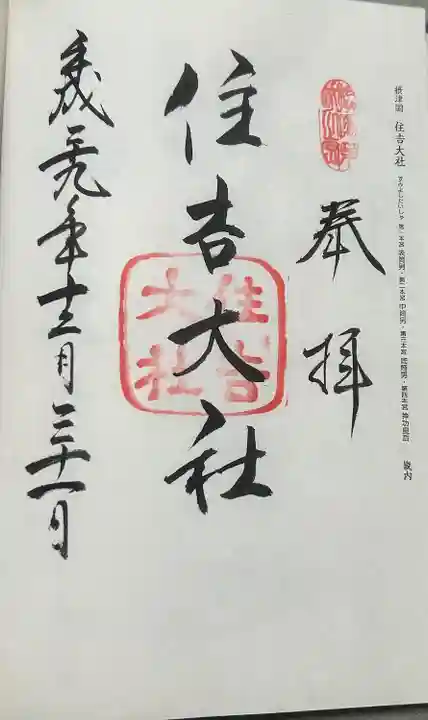 摂津國 住吉大社 すみよしたいしゃ 第一本宮 表筒男・第二本宮 中筒男・第三本宮 底筒男・第四本宮 神功皇后 畿内
奉拝
住吉大社
住吉
大社
平成二十九年十二月三十一日